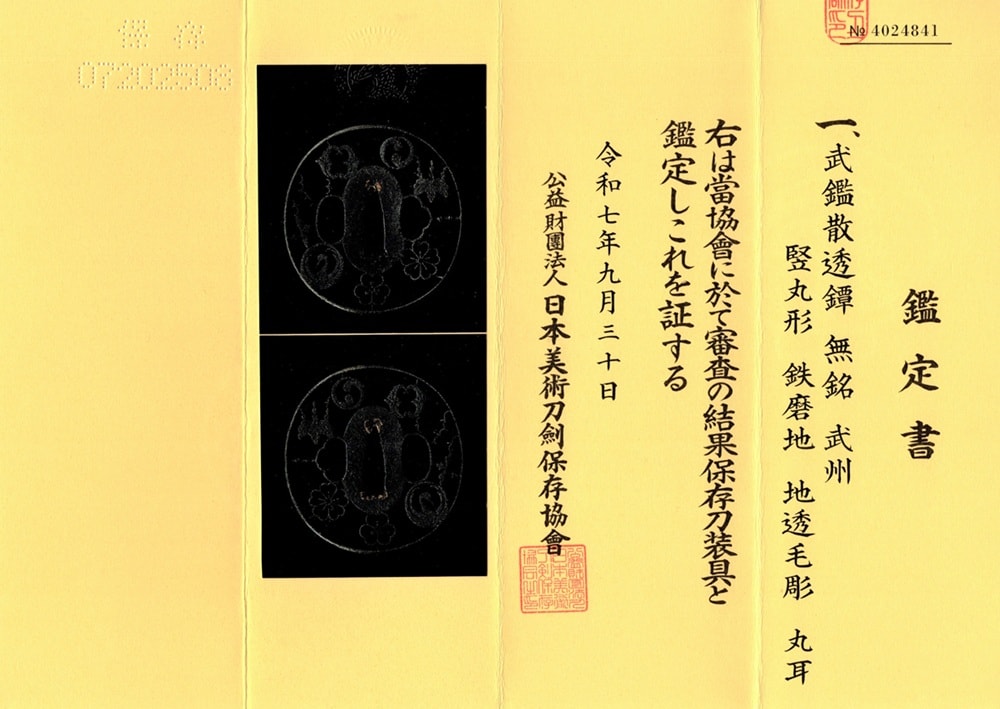 № 4024841
鑑定書
一、武鑑散透鐔 無銘 武州
竪丸形 鉄磨地 地透毛彫 丸耳
右は當協會に於て審査の結果保存刀装具と
鑑定しこれを証する
令和七年九月三十日
公益財團法人 日本美術刀劍保存協會
保存
07202506